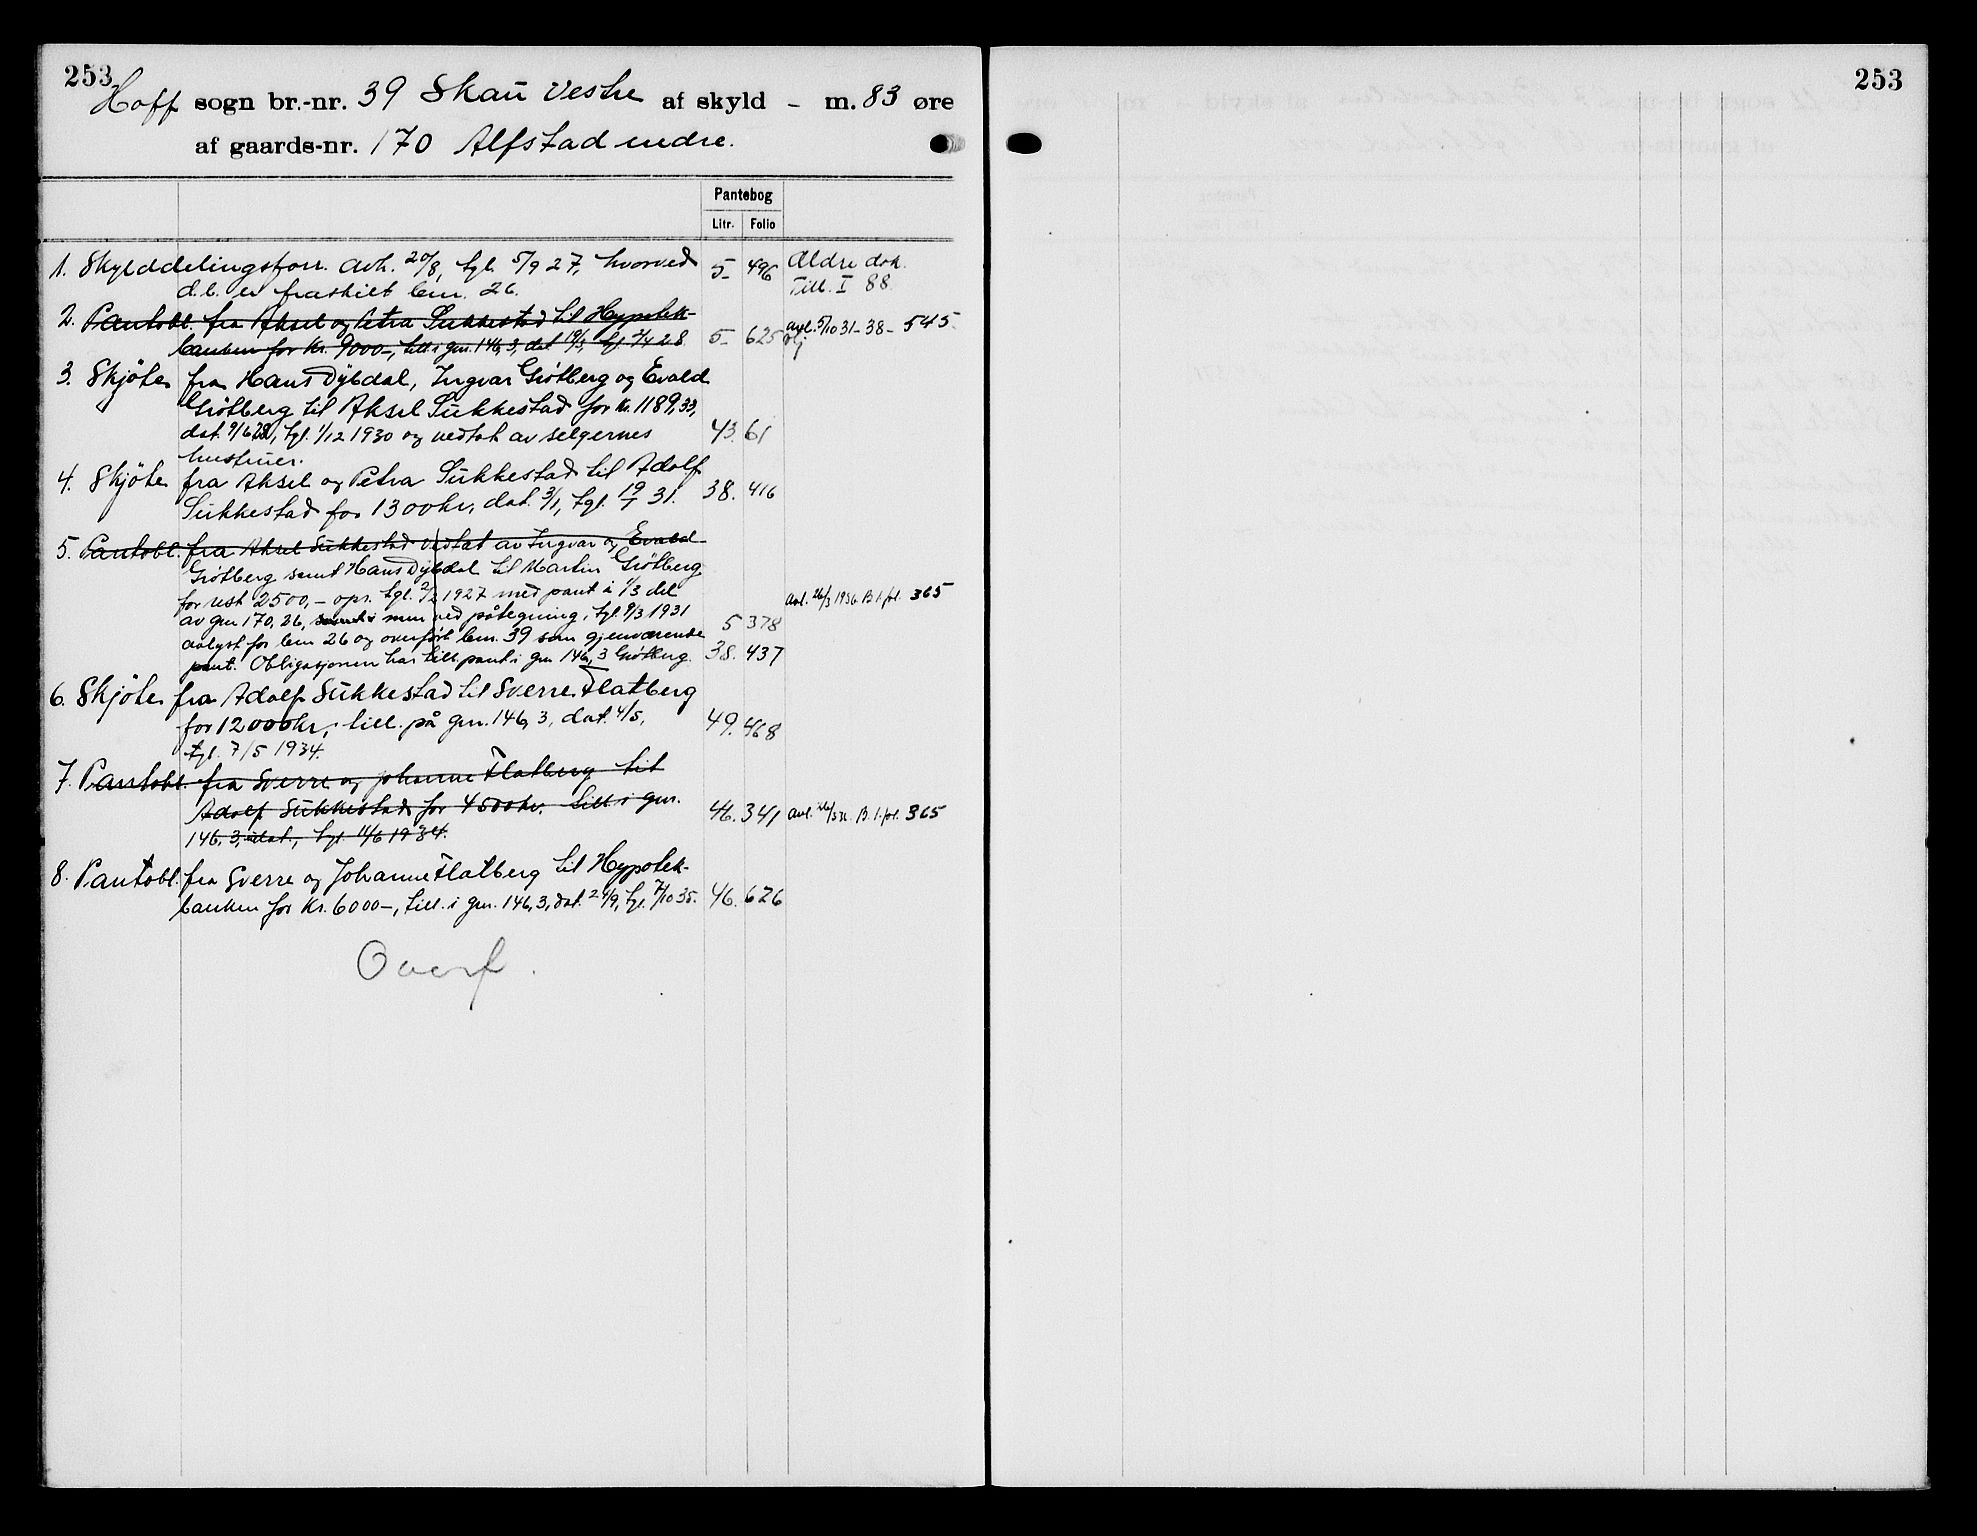 253
Hoff sogn br.-nr. 39 Skau Vestre af skyld – m. 83 øre
af gaards-nr. 170 Alfstad nedre.
Pantebog
Litr. Folio
1. Skylddelingsforr. avh. 20/8, tgl. 5/9 27, hvorved 5 496 Ældre dok.
d.b. er fraskilt bnr. 26. Till. I 88
2. Pantobl. fra Aksel og Petra Sukkestad til Hypotek-
banken for Kr. 9000–, till i gnr. 146,3, dat 19/3, tgl 2/4 28. 5 625 avl. 5/10 31 – 38 – 545
3. Skjöte fra Hans Dybdal, Ingvar Grötberg og Evald
Grötberg til Aksel Sukkestad for kr. 1189,33,
dat. 9/6 28, tgl. 1/12 1930 og vedtat av selgernes 43. 61
hustruer.
4. Skjöte fra Aksel og Petra Sukkestad til Adolf
Sukkestad for 1300 kr, dat. 3/1, tgl. 19/1 31. 38. 416
5. Pantobl. fra Aksel Sukkestad vedtat av Ingvar og Evald
Grötberg samt Hans Dybdal til Martin Grötberg
for rest 2500,– opr. tgl. 2/2 1927 med pant i 1/3 del avl. 26/3 1936 B.1. fol. 365
av gnr 170, 26, men ved påtegning, tgl. 9/3 1931 5 378
avlyst for bnr 26 og overført bnr. 39 som gjenværende
pant. Obligasjonen har till. pant i gnr 146, 3 Grötberg. 38. 437
6. Skjöte fra Adolf Sukkestad til Sverre Flatberg
for 12000 kr, till. på gnr. 146, 3, dat. 4/5, 49. 468
tgl. 7/5 1934.
7. Pantobl. fra Sverre og Johanne Flatberg til
Adolf Sukkestad for 4500 kr. till i gnr. 46. 341 avl. 26/3 36. B. 1. fol. 365
146, 3, udat., tgl 11/6 1934.
8. Pantobl. fra Sverre og Johanne Flatberg til Hypotek-
banken for Kr. 6000–, till. i gnr. 146, 3, dat. 24/9, tgl. 7/10 35. 46. 626
Overf.
253